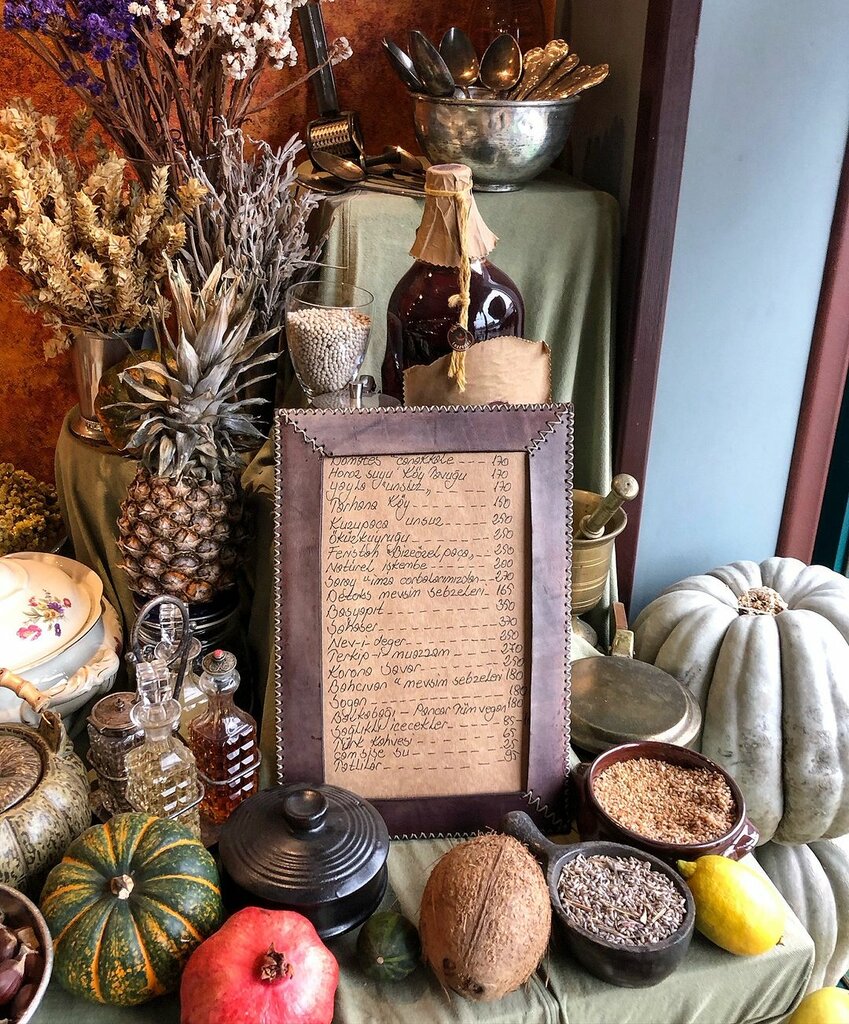 Domates "çanakkale" ---- 170
Horoz suyu Köy Tavuğu 170
Yayla "unsuz" ------- 170
Tarhana Köy
Kuzupaça unsuz ------ 250
Öküzkuyruğu -------- 250
Feriştah "Bizeözel paça" 250
Natürel işkembe --- 200
Saray "imza çorbalarımızdan" 270
Detoks mevsim sebzeleri 165
Başyapıt ---------- 350
Şaheser ---------- 370
Nev-i değer ------- 250
Terkip-i muazzam --- 270
Korona Savar ------ 250
Bahçıvan "mevsim sebzeleri 180
Soğan ---------- 180
Balkabağı - Pancar Tüm vegan 180
Sağlıklı içecekler -- 85
Türk Kahvesi ------ 65
Cam şişe su ------- 25
Tatlılar --------- 95